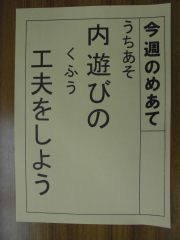 今週のめあて
うちあそ
内遊びの
くふう
工夫をしよう